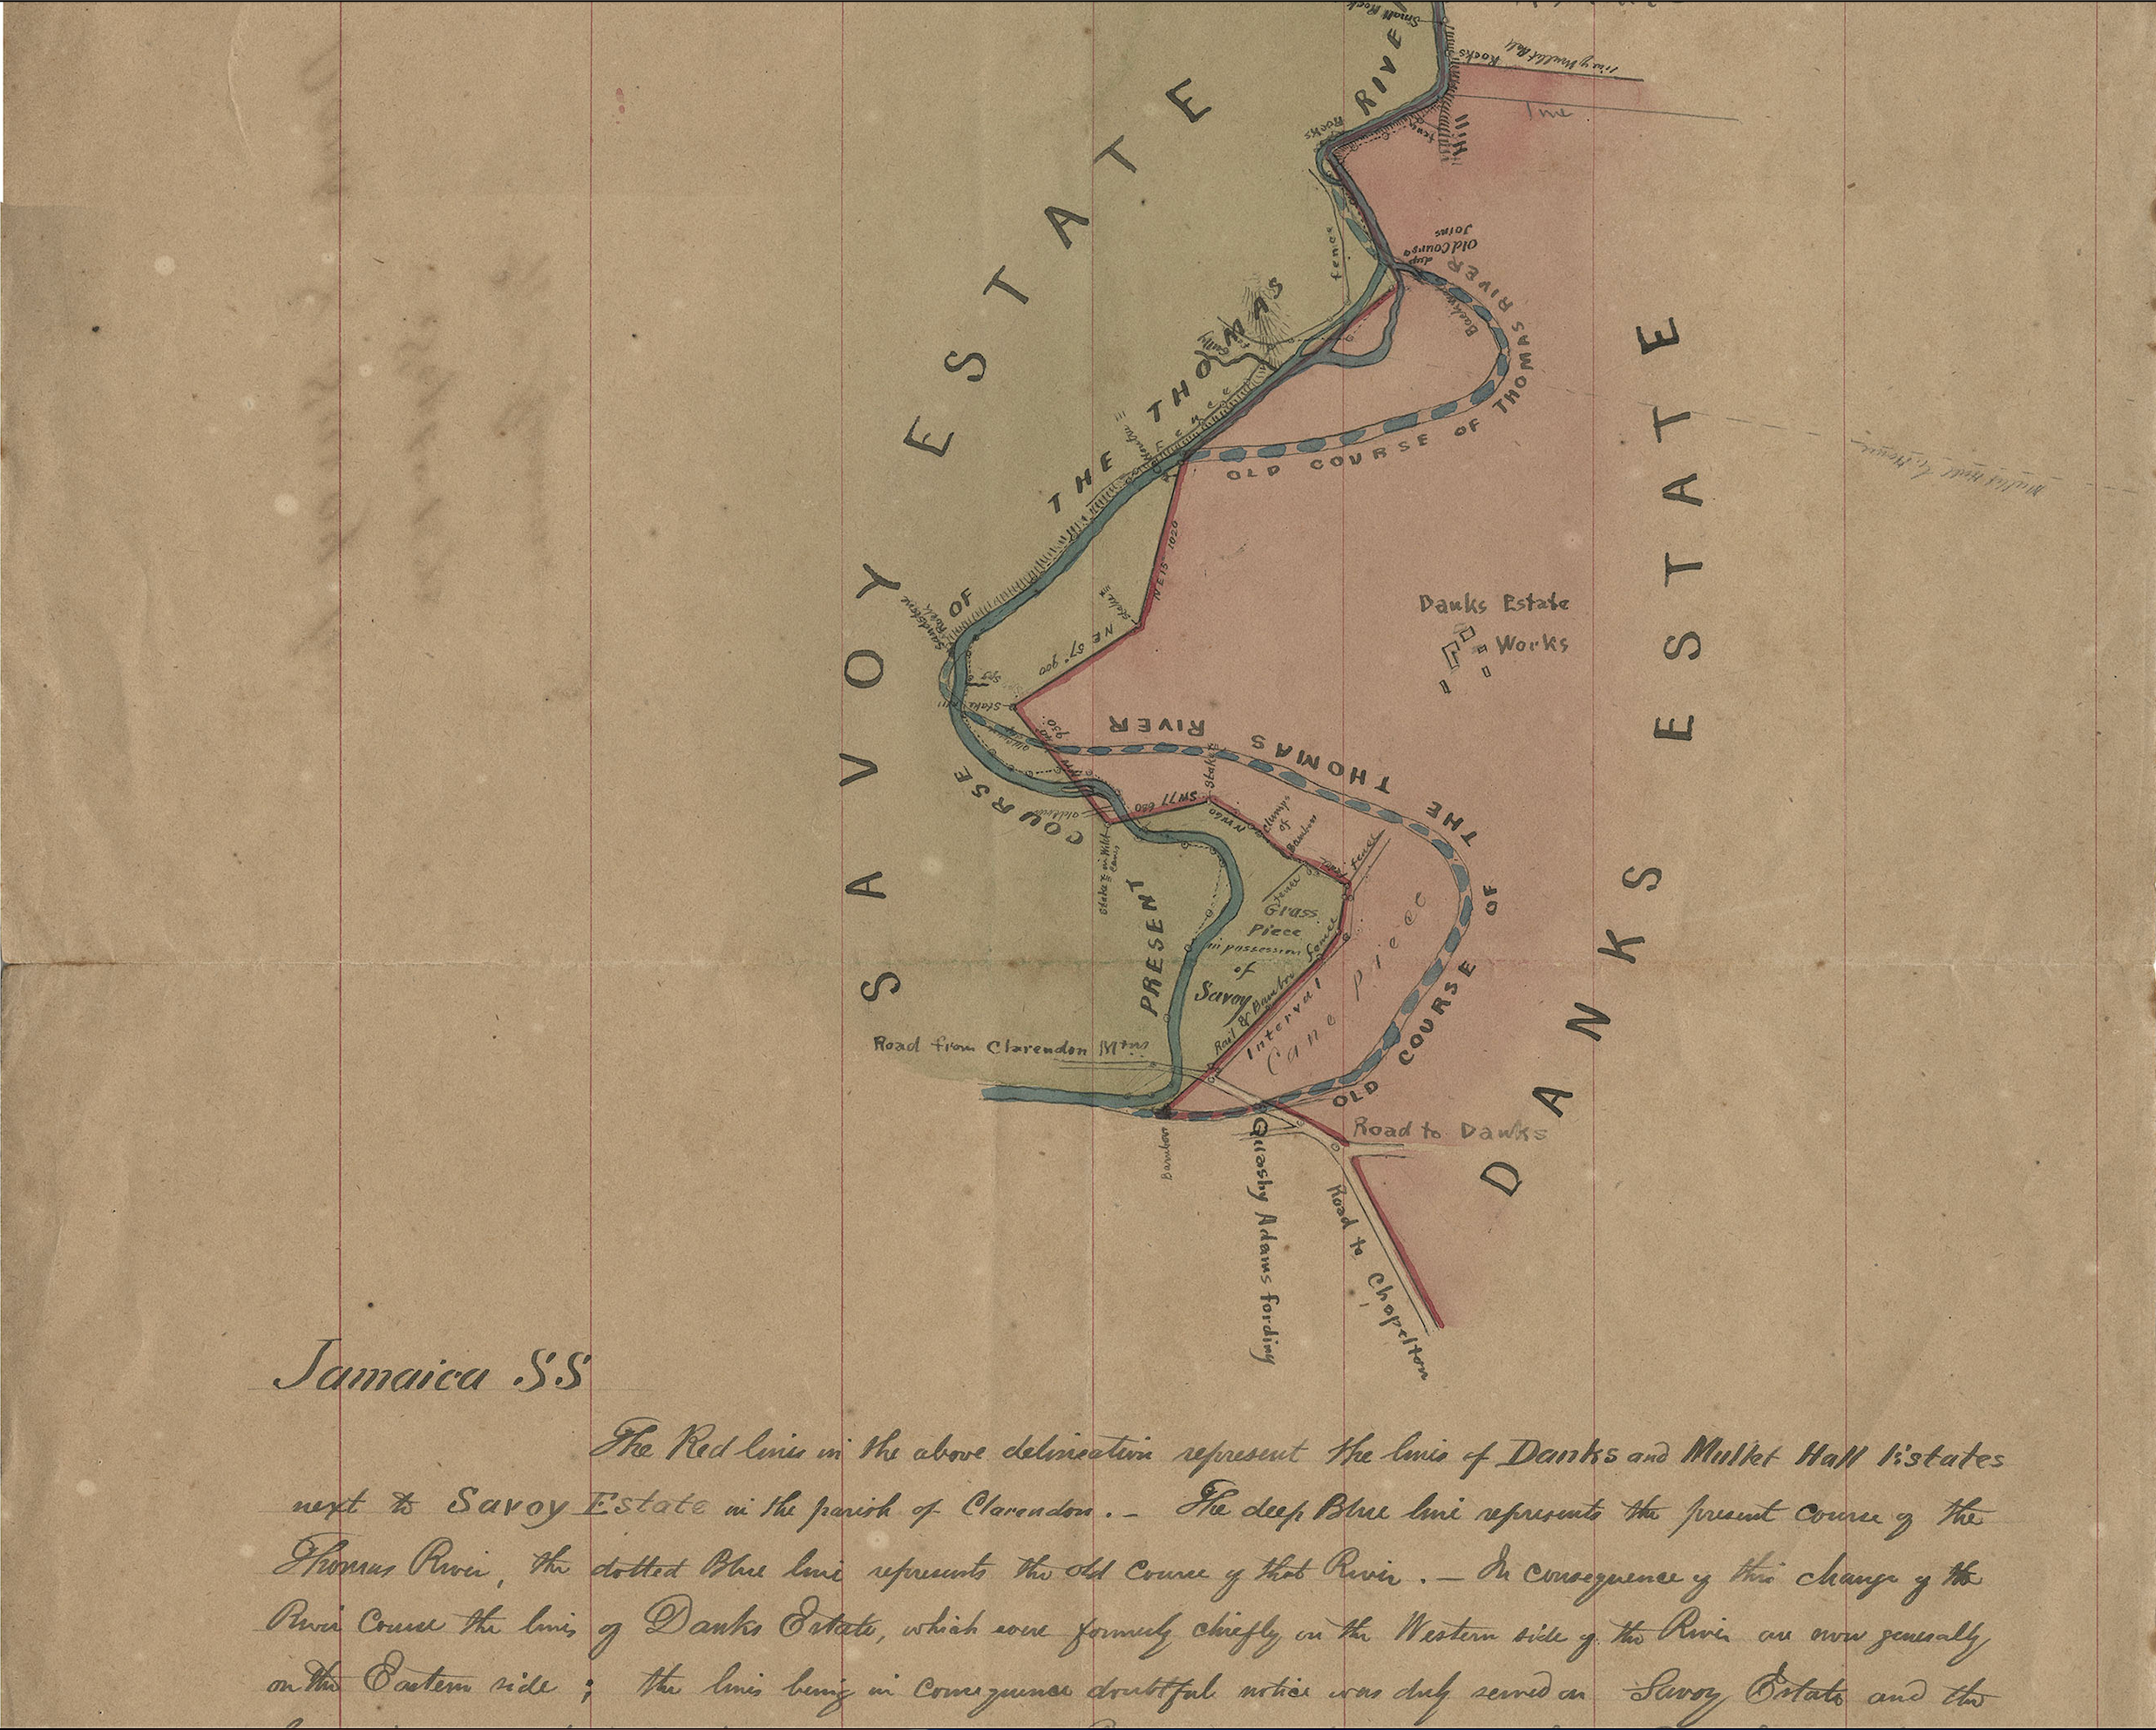 Small Rock
Rocks
Hill
fence
Rocks
Line
PRESENT COURSE OF THE THOMAS RIVE
Old Course
Joins
fence
OLD COURSE OF THOMAS RIVER
SAVOY ESTATE
DANKS ESTATE
fence
NE 15 1020
Stake
NE 57° 900
Sandstone
Rock
Stake
Danks Estate
Works
OLD COURSE OF THE THOMAS RIVER
SW 77 680
Stake
NW 60
Clump
of
Bamboo
fence
fence
Stake in Wild
Cane
Grass
Piece
in possession
of
Savoy
Rail & Bamboo fence
Interval
Cane Piece
Road from Clarendon Mtns
Bamboo
Quashy Adams fording
Road to Danks
Road to Chapelton
Jamaica SS
The Red lines in the above delineation represent the lines of Danks and Mullet Hall Estates
next to Savoy Estate in the parish of Clarendon. – The deep Blue line represents the present course of the
Thomas River, the dotted Blue line represents the old course of that River. – In consequence of this change of the
River Course the lines of Danks Estate, which were formerly chiefly on the Western side of the River are now generally
on the Eastern side ; the lines being in consequence doubtful notice was duly served on Savoy Estate and the